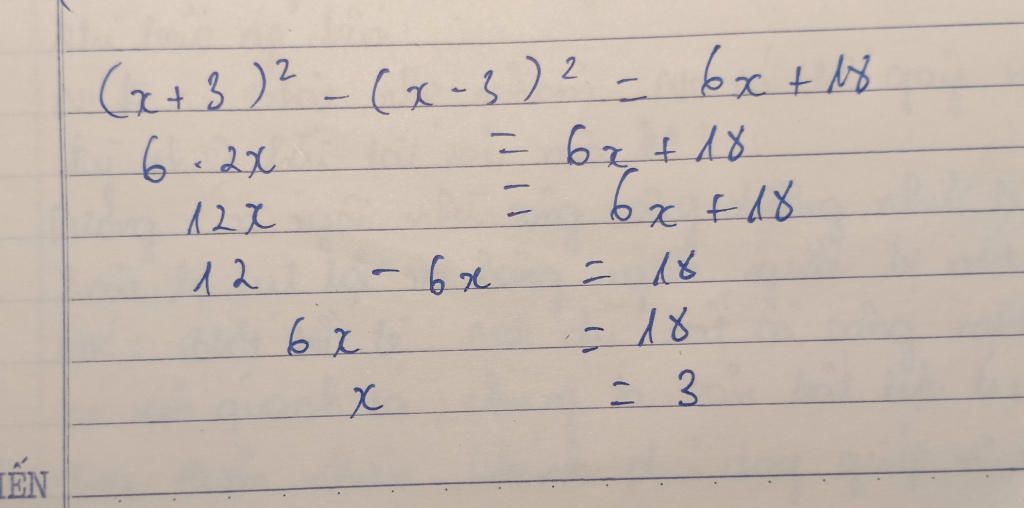 (x + 3)² - (x - 3)² = 6x + 18
6 . 2x = 6x + 18
12x = 6x + 18
12 - 6x = 18
6x = 18
x = 3
IẾN